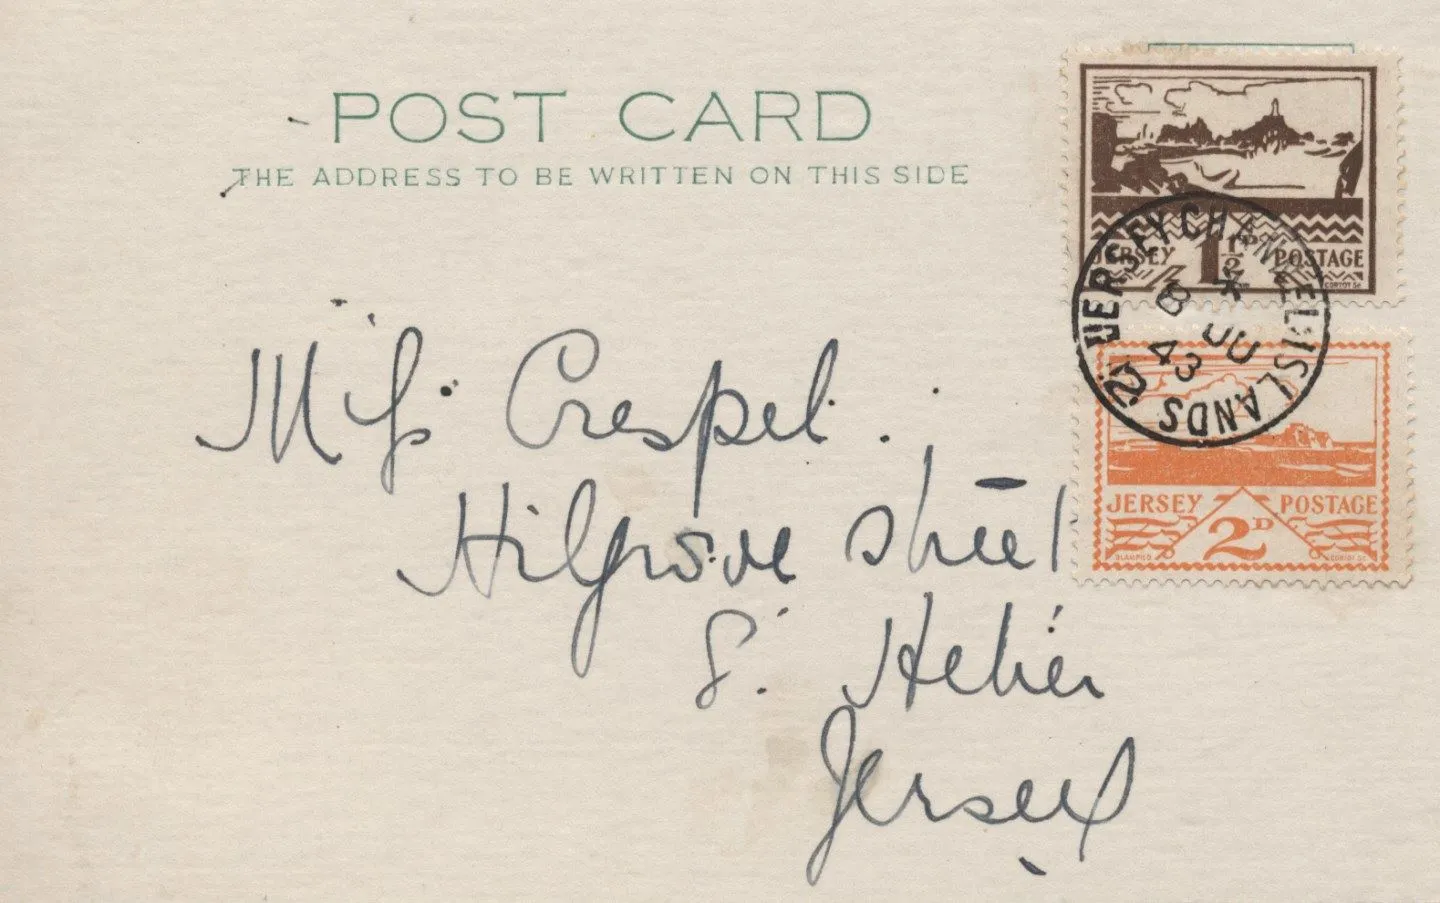 POST CARD
THE ADDRESS TO BE WRITTEN ON THIS SIDE
JERSEY 1½D POSTAGE
CORTOT SC.
JERSEY CHANNEL ISLANDS
8 JU
43
JERSEY POSTAGE
2D
BLAMPIED CORTOT SC.
Miss Crespel.
Hilgrove Street
S. Helier
Jersey